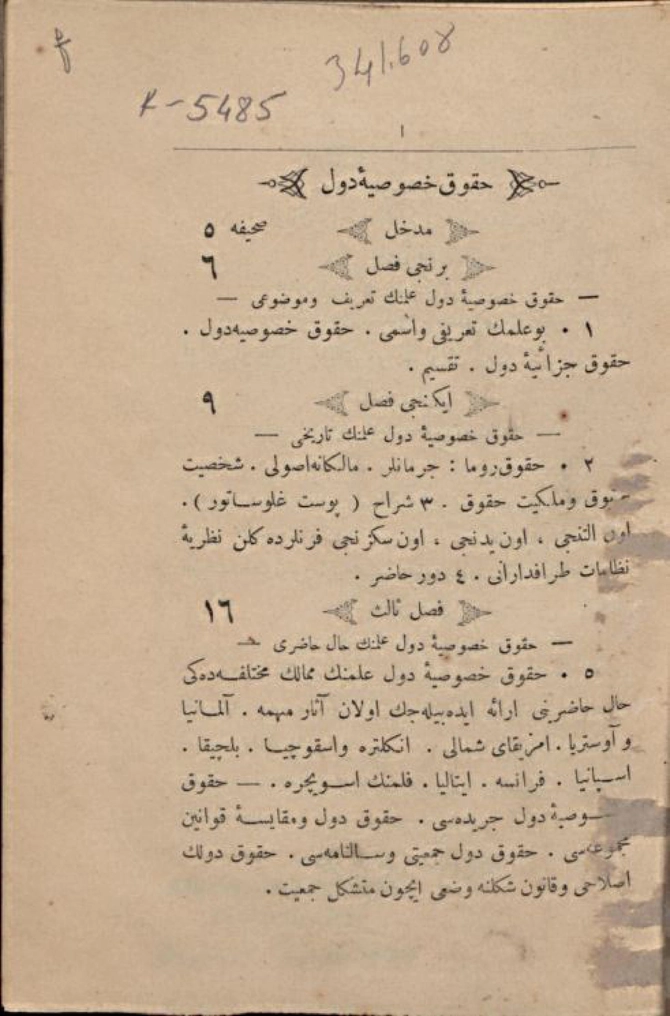 341.608
K-5485
١
حقوق خصوصیهٔ دول
مدخل صحیفه ٥
برنجی فصل ٦
— حقوق خصوصیهٔ دول علمنك تعریف وموضوعی —
١ . بوعلمك تعریفی واسمی . حقوق خصوصیه‌دول .
حقوق جزائیهٔ دول . تقسیم .
ایكنجی فصل ٩
— حقوق خصوصیهٔ دول علمنك تاریخی —
٢ . حقوق‌روما : جرمانلر . مالكانه‌اصولی . شخصیت
حقوق وملكیت حقوق . ٣ شراح ( پوست غلوساتور ) .
اون التنجی ، اون یدنجی ، اون سكزنجی قرنلرده كلن نظریهٔ
نظامات طرافدارانی . ٤ دور حاضر .
فصل ثالث ١٦
— حقوق خصوصیهٔ دول علمنك حال حاضری —
٥ . حقوق خصوصیهٔ دول علمنك ممالك مختلفه‌ده‌كی
حال حاضرینی ارائه ایده‌بیله‌جك اولان آثار مهمه . آلمانیا
و آوستریا . امریقای شمالی . انكلتره واسقوچیا . بلجیقا .
اسپانیا . فرانسه . ایتالیا . فلمنك اسویچره . — حقوق
خصوصیهٔ دول جریده‌سی . حقوق دول ومقایسهٔ قوانین
مجموعه‌سی . حقوق دول جمعیتی وسالنامه‌سی . حقوق دولك
اصلاحی وقانون شكلنه وضعی ایچون متشكل جمعیت .